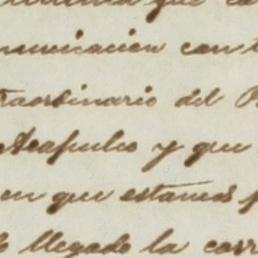 que
municacion con
traordinario del
Acapulco y que
en que estamos
llegado la corr